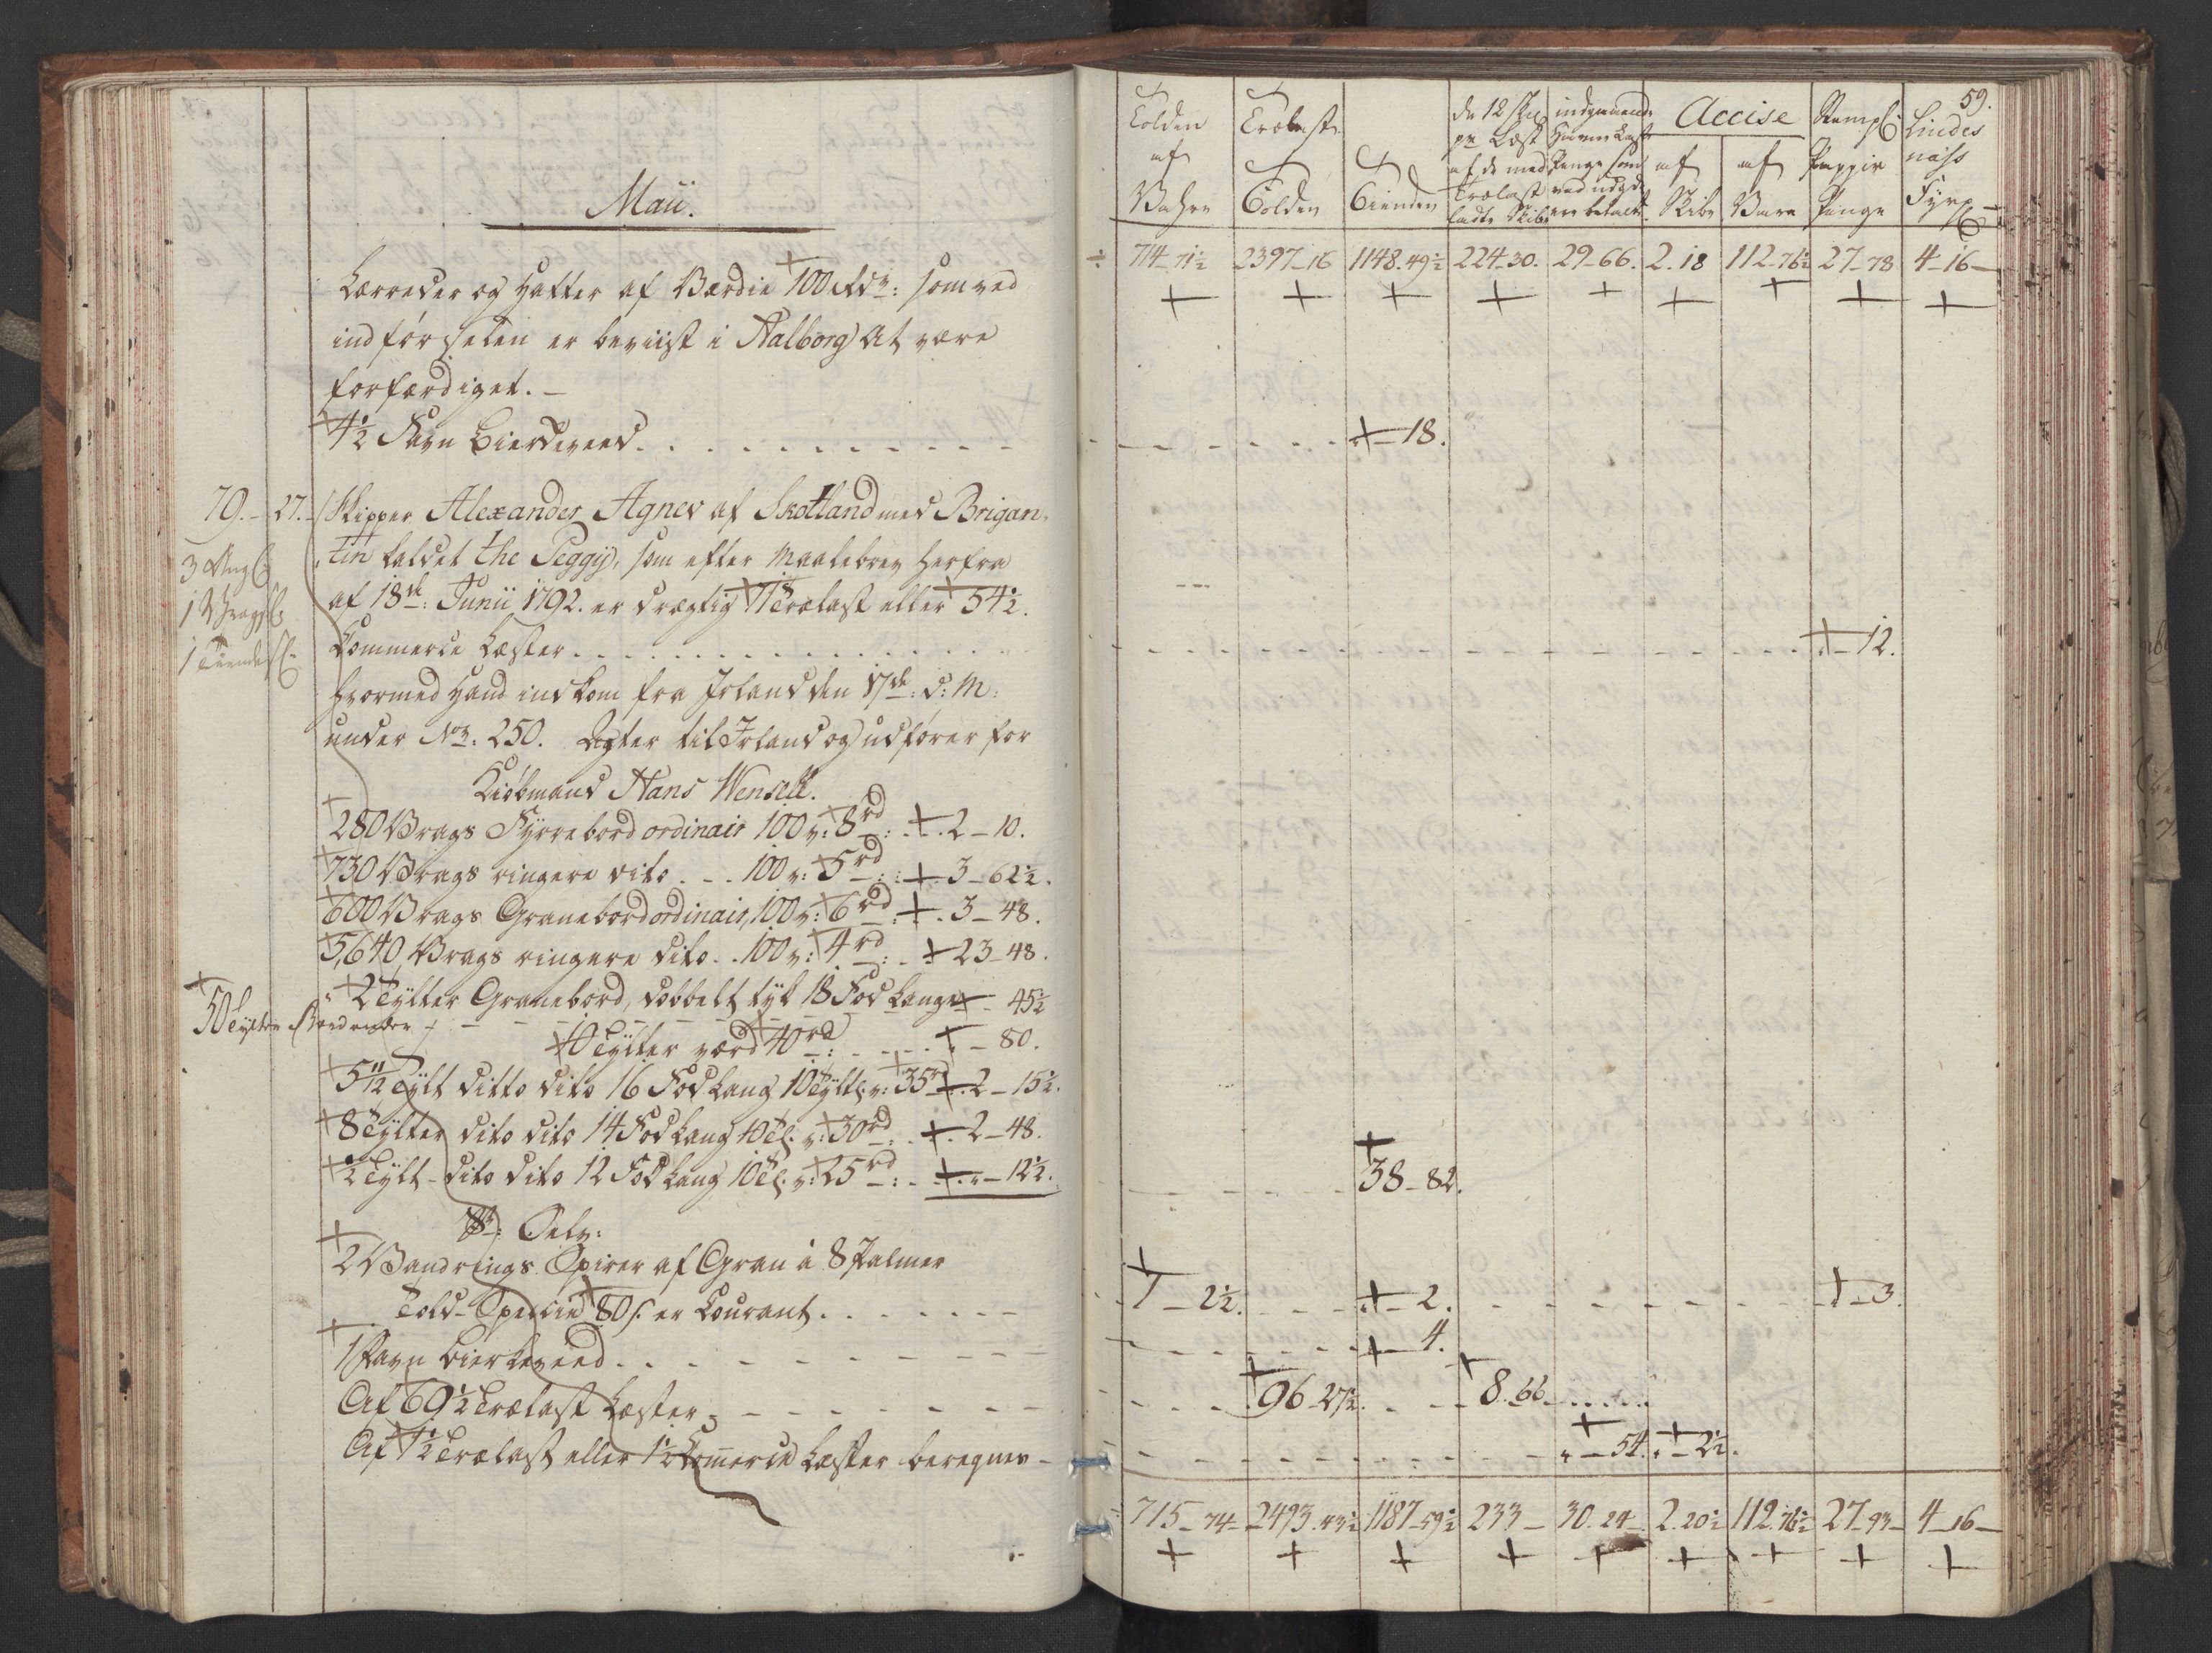 Maii.
Lærreder og Hatter af Værdie 100 Rdr: som ved
indførselen er beviist i Aalborg at være
forfærdiget. –
4½ Favn Birkeveed
79. 27. Skipper Alexander Agnev af Skotland med Brigan-
tin kaldet the Peggij, som efter Maalebrev herfra
3 Ang:
af 18de: Junii 1792. er drægtig 71 Trælast eller 54½.
1 Vragss:
Commerce Læster
1 Tiendess:
hvormed Hand indkom fra Irland den 17de: d: M:
under No: 250. Agter til Irland og udfører for
Kiøbmand Hans Wensell.
280 Vrags Fyrrebord ordinair 100 v: 8 rd: 2 – 10.
730 Vrags ringere dito 100 v: 5 rd: 3 – 62½.
600 Vrags Granebord ordinair, 100 v: 6 rd: 3 – 48.
5,640 Vrags ringere dito 100 v: 4 rd: 23 – 48.
2 Tylter Granebord, dobbelt tyk 18 Fod Lange – 45½
50 Tylter Bordender
10 Tylter værd 40 rd: – 80.
5 11/12 Tylt ditto dito 16 Fod Lang 10 Tylt: v: 35 rd 2 – 15½.
8 Tylter dito dito 14 Fod Lang 10 T: v: 30 rd: 2 – 48.
½ Tylt dito dito 12 Fod Lang 10 T: v: 25 rd: " – 12½.
Selv:
2 Vandrings Spirer af Gran à 8 Palmer
Told-Specie 80 s: er Courant
1 Favn Birkeveed
Af 69½ Trælast Læster
Af 1½ Trælast eller 1½ Commerce Læster beregnes –
59.
Tolden af Vahre
Trælast Tolden
Tienden
de 12 s pr Læst af de med Trælast ladte Skibe
indgaaende Havne Laste Penge, som ved udgd: ere betalt
Accise
af Skibe
af Vare
Stempl: Pappir Penge
Lindes næss Fyrp:
714 – 71½ 2397 – 16 1148. 49½ 224 – 30. 29 – 66. 2. 18 112 – 76½ 27 – 78 4 – 16 –
" – 18.
" – 12.
38 – 82.
1 – 2½. " – 2. " – 3.
" – 4.
96 – 27½. 8. 66
" – 54. " – 2½.
715 – 74 – 2493. 43½ 1187 – 59½ 233 – 30. 24 – 2. 20½ 112. 76½ 27 – 93 – 4 – 16 –